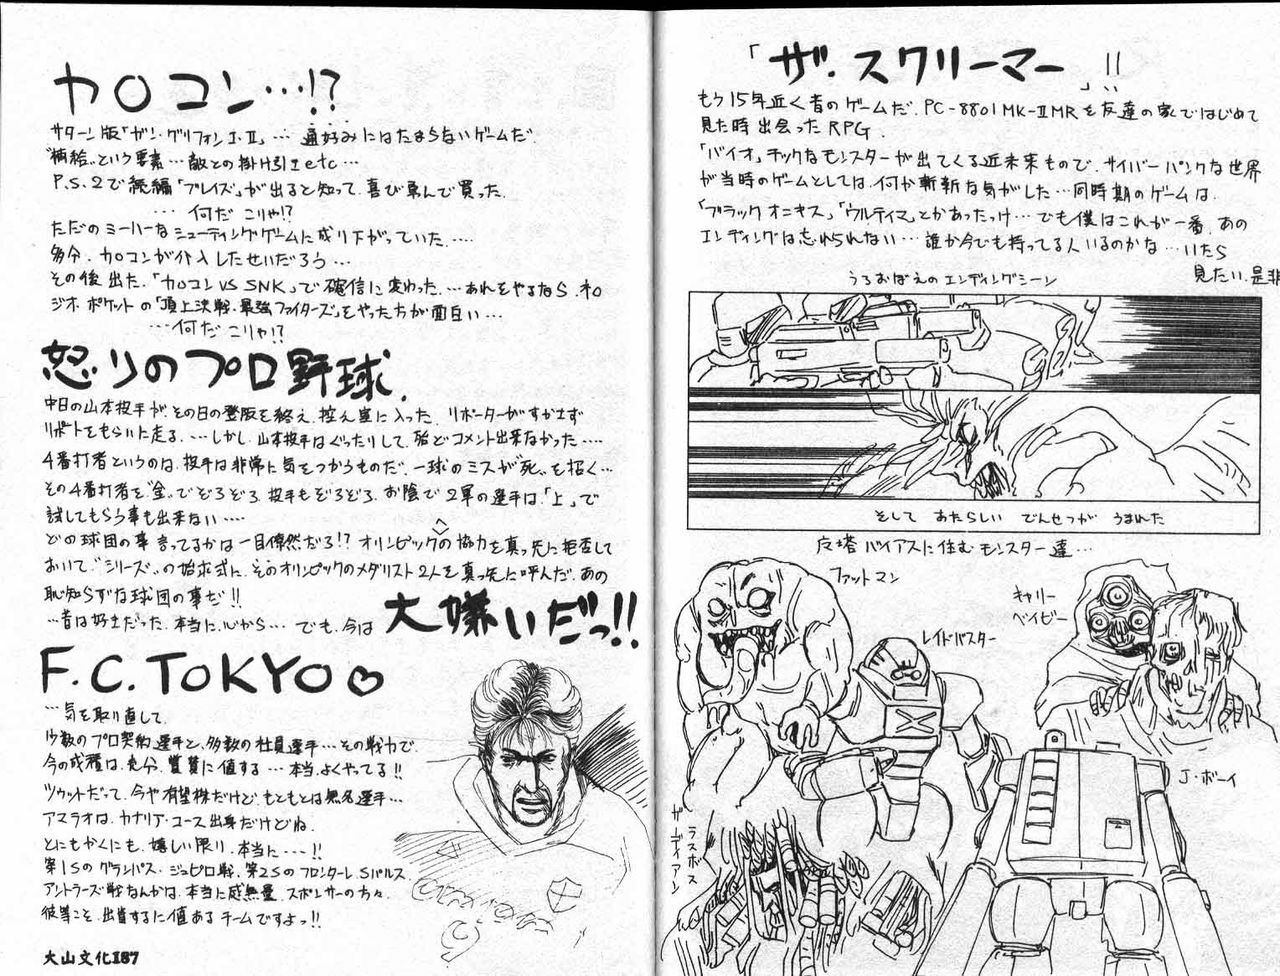 カ○コン…!?
サターン版「ガン・グリフォンI・II」… 通好みにはたまらないゲームだ
"補給"という要素…敵との掛け引きetc…
P.S.2で続編「ブレイズ」が出ると知って、喜び勇んで買った
… 何だ こりゃ!?
ただのミーハーなシューティングゲームに成り下がっていた….
多分、カ○コンが介入したせいだろう…
その後出た、「カ○コンVS SNK」で確信に変わった…あれをやるなら、ネオ
ジオ・ポケットの「頂上決戦・最強ファイターズ」をやった方が面白い…
…何だ こりゃ!?
怒りのプロ野球.
中日の山本投手が、その日の登板を終え、控え室に入った、リポーターがすかさず
リポートをもらいに走る、…しかし、山本投手はぐったりして、殆どコメント出来なかった….
4番打者というのは、投手は非常に気をつかうものだ、一球のミスが"死"を招く…
その4番打者を"金"でぞろぞろ、投手もぞろぞろ、お陰で2軍の選手は、「上」で
試してもらう事も出来ない….
どの球団の事言ってるかは一目瞭然だろ!? オリンピックへの協力を真っ先に拒否して
おいて、"シリーズ"の始球式に、そのオリンピックのメダリスト2人を真っ先に呼んだ、あの
恥知らずな球団の事だ!!
…昔は好きだった、本当に、心から… でも、今は 大嫌いだっ!!
F.C.TOKYO♡
…気を取り直して、
少数のプロ契約選手と、多数の社員選手…その戦力で、
今の成績は、充分、賞賛に値する…本当、よくやってる!!
ツゥットだって、今や有望株だけど、もともとは無名選手…
アマラオは、カナリア・コース出身だけどね、
とにもかくにも、嬉しい限り、本当に…!!
第1Sのグランパス・ジュビロ戦、第2Sのフロンターレ、Sパルス、
アントラーズ戦なんかは、本当に感無量、スポンサーの方々、
彼等こそ、出資するに値あるチームですよっ!!
大山文化187
「ザ・スクリーマー」!!
もう15年近く昔のゲームだ、PC-8801MK-IIMRを友達の家ではじめて
見た時出会ったRPG
「バイオ」チックなモンスターが出てくる近未来もので、サイバーパンクな世界
が当時のゲームとしては、何か斬新な気がした…同時期のゲームは、
「ブラックオニキス」「ウルティマ」とかあったっけ…でも僕はこれが一番、あの
エンディングは忘れられない…誰か今でも持ってる人いるのかな…いたら
見たい、是非
うろおぼえのエンディングシーン
そして あたらしい でんせつが うまれた
反塔バイアスに住むモンスター達…
ファットマン
レイドバスター
キャリー
ベイビー
J・ボーイ
ラスボス
ガーディアン